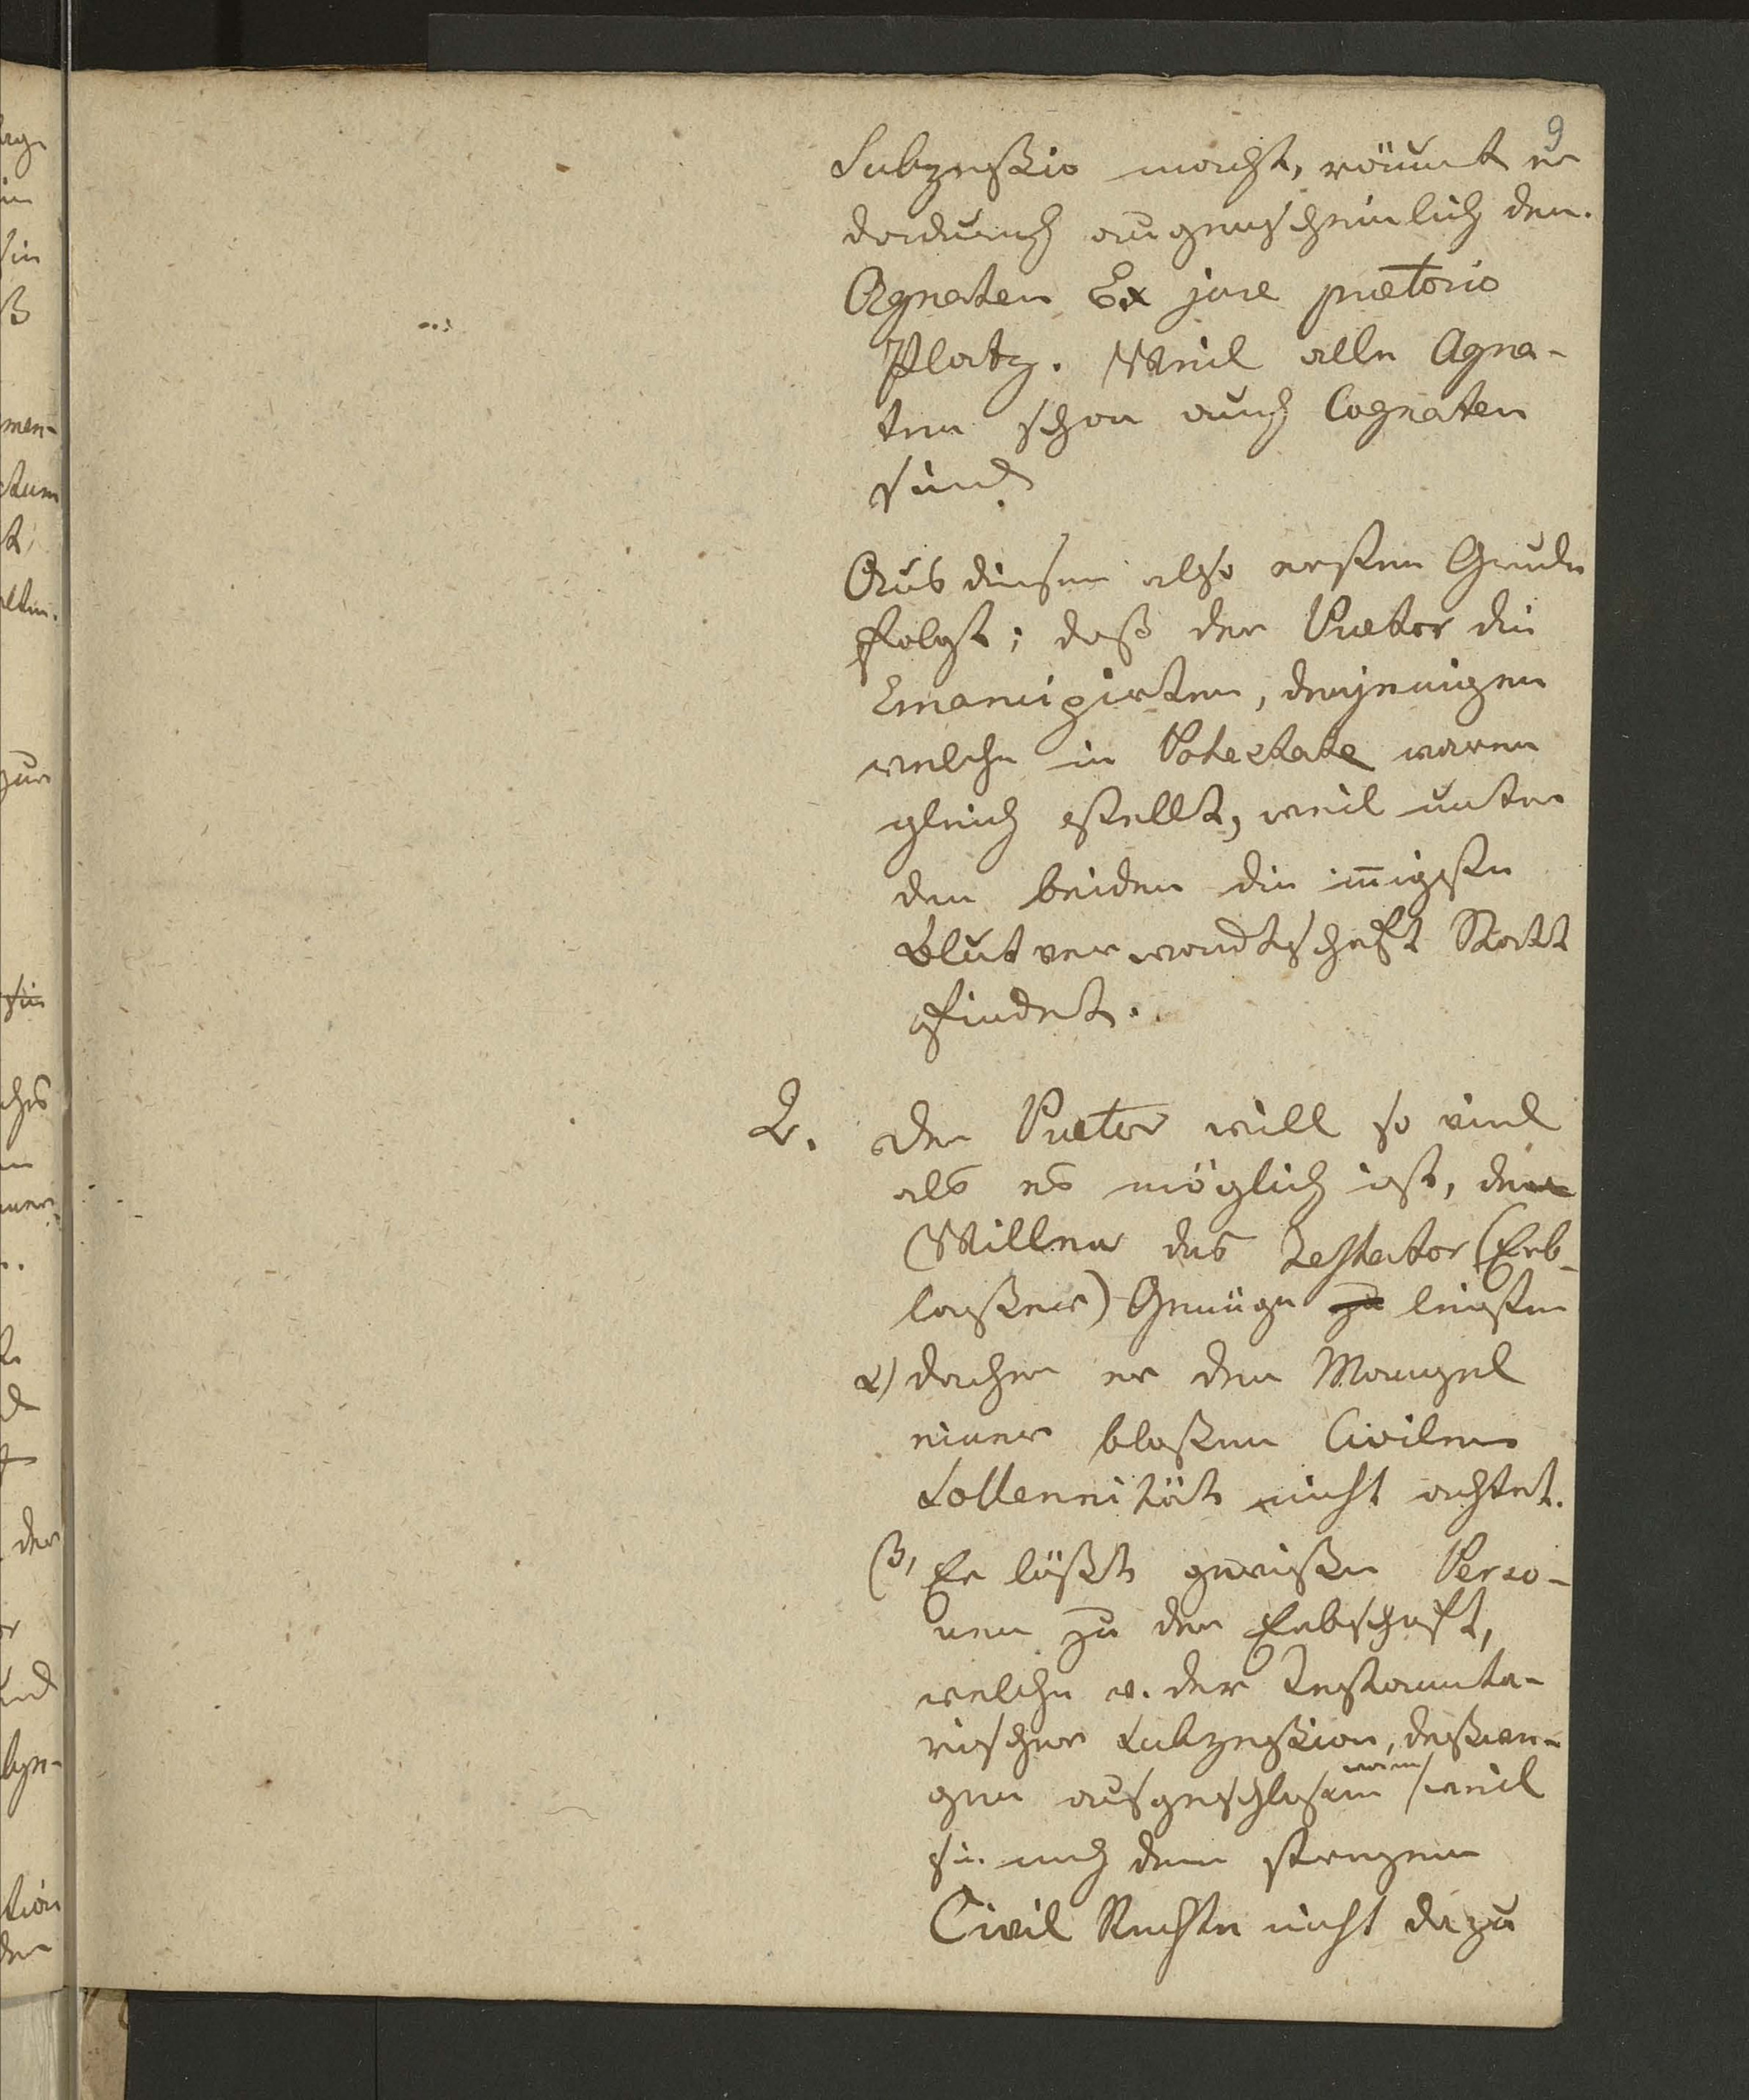 9
Sukzeßio macht, räumt er
dadurch augenscheinlich den
Agnaten Ex jure prætorio
Platz. Weil alle Agna-
ten schon auch Cognaten
sind.
Aus diesem also ersten Grunde
folgt; daß der Prætor die
Emancipirten, denjenigen
welche in Potestate waren
gleich stellt, weil unter
den beiden die iñigste
Blutverwandtschaft Statt
findet.
2. Der Prætor will so viel
als es möglich ist, dem
Willen des Testator (Erb-
laßers) Genüge zu leisten
α) daher er den Mangel
einer bloßen Civilen
Sollennität nicht achtet.
β) Er läßt gewiße Perso-
nen zu der Erbschaft,
welche v. der Testamenta-
rischer Sukzeßion, deßwe-
gen ausgeschloßen waren weil
sie nach dem strengen
Civil Rechte nicht dazu
men-
ctum
zur
sie
ches
der
und
tion